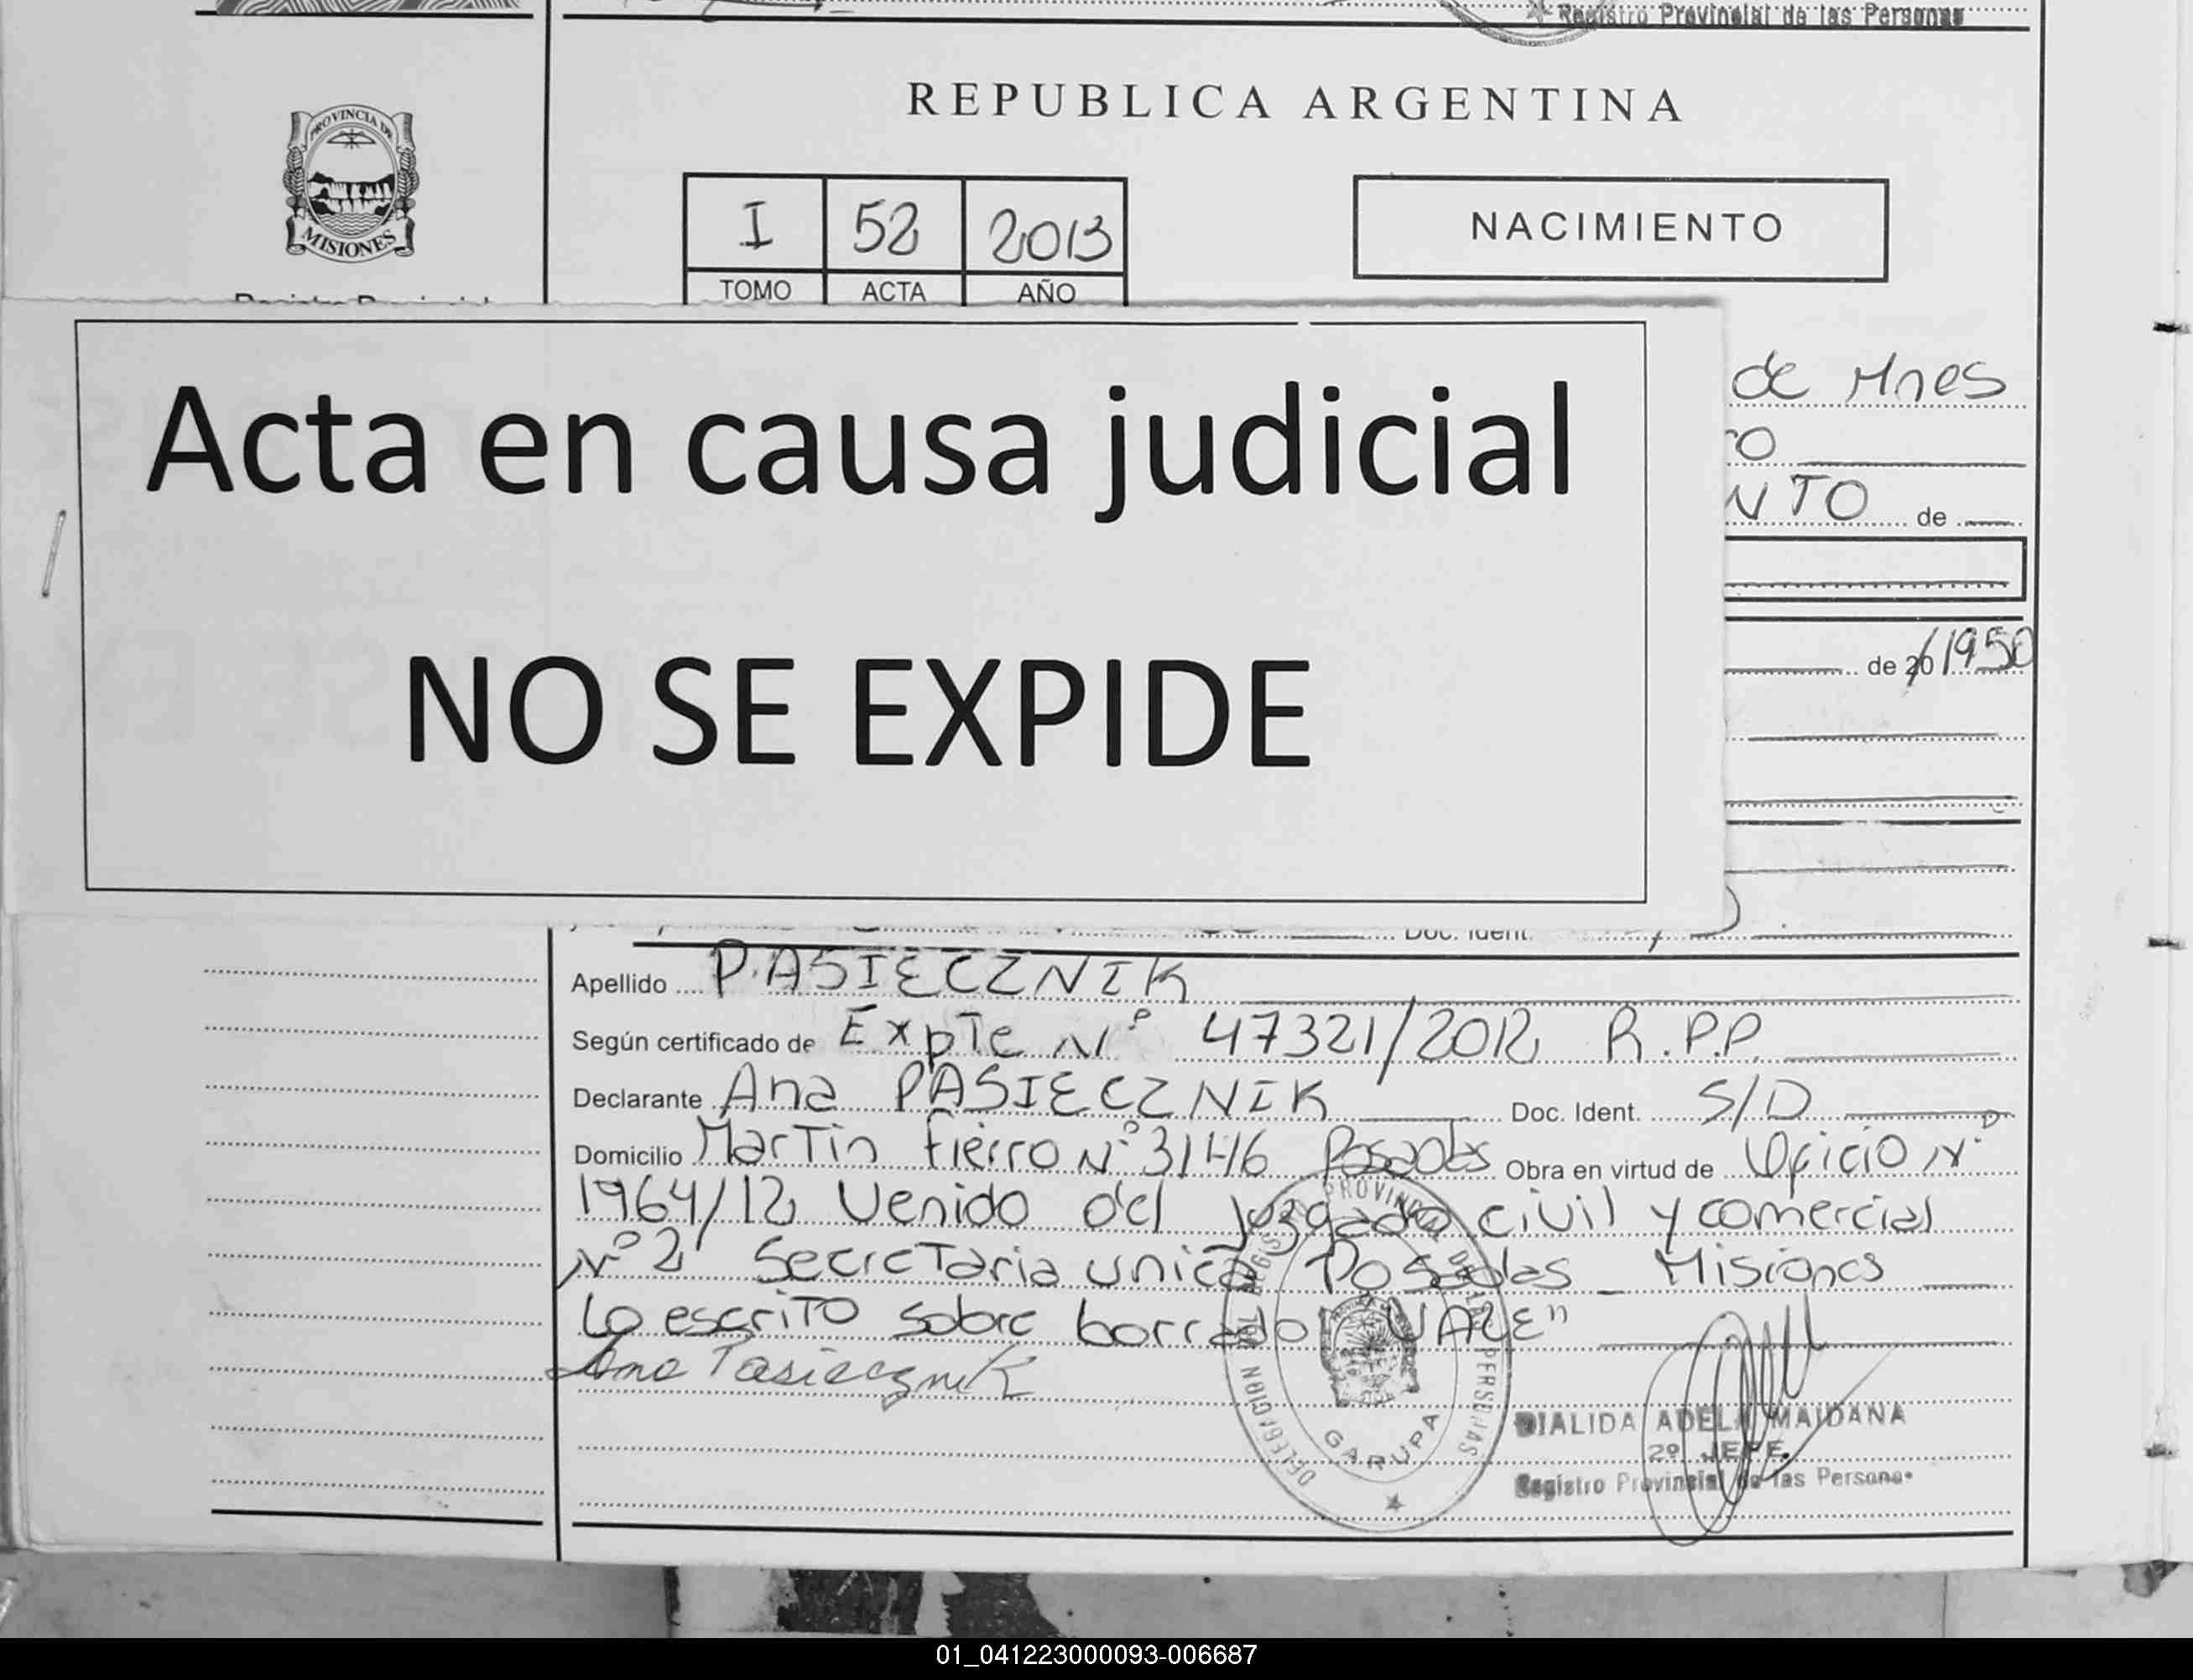 Registro Provincial de las Personas
REPUBLICA ARGENTINA
PROVINCIA DE
MISIONES
I 52 2013
TOMO ACTA AÑO
NACIMIENTO
de Mnes
Acta en causa judicial
NTO de
NO SE EXPIDE
de 20 1950
Doc. Ident.
Apellido PASIECZNIK
Según certificado de Expte N° 47321/2012 R.P.P.
Declarante Ana PASIECZNIK Doc. Ident. S/D
Domicilio Martin fierro N° 3146 Posadas Obra en virtud de Oficio N°
1964/12 Venido del Juzgado civil y comercial
N° 2 Secretaria unica Posadas Misiones
Lo escrito sobre borrado "VALE"
Ana Pasiecznik
DELEGACION DEL REGISTRO PROVINCIAL DE LAS PERSONAS
GARUPA
DIALIDA ADELA MAIDANA
2º JEFE
Registro Provincial de las Personas
01_041223000093-006687